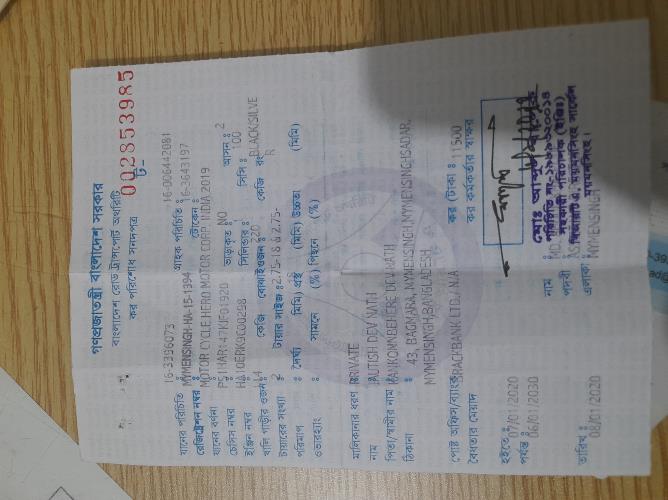 গণপ্রজাতন্ত্রী বাংলাদেশ সরকার
বাংলাদেশ রোড ট্রান্সপোর্ট অথরিটি
কর পরিশোধ সনদপত্র
ট- 002853985
যানের পরিচিতি : 16-3396073 গ্রাহক পরিচিতি : 16-006442081
রেজিস্ট্রেশন নম্বর : MYMENSINGH-HA-15-1394 টোকেন : 16-3643197
যানের বর্ণনা : MOTOR CYCLE,HERO MOTOR CORP. INDIA,2019
চেসিস নম্বর ভাড়াকৃত : NO আসন : 2
ইঞ্জিন নম্বর : সিলিন্ডার : সিসি : 100
খালি গাড়ীর ওজন : 114 কেজি বোঝাই ওজন : 220 কেজি রং : BLACK/SILVER
টায়ারের সংখ্যা : 2 টায়ার সাইজ : 2.75-18 & 2.75-
পরিমাপ : দৈর্ঘ্য (মিমি) প্রস্থ (মিমি) উচ্চতা (মিমি)
ওভারহ্যাং : সামনে (%) পিছনে (%)
মালিকানার ধরণ : PRIVATE
নাম : DEV NATH
পিতা/স্বামীর নাম :
ঠিকানা : 43, BAGMARA, MYMENSINGH,MYMENSINGHSADAR,
MYMENSINGH,BANGLADESH
পোষ্ট অফিস/ব্যাংক : BRACK BANK LTD./ N.A কর (টাকা) : 11500
বৈধতার মেয়াদ কর কর্মকর্তার স্বাক্ষর
হইতে : 07/01/2020
পর্যন্ত : 06/01/2030
নাম : MD.
পদবী :
এলাকা : MYMENSINGH
তারিখ : 08/01/2020
সহকারী পরিচালক (ইঞ্জিঃ)
বিআরটিএ, ময়মনসিংহ সার্কেল
ময়মনসিংহ।